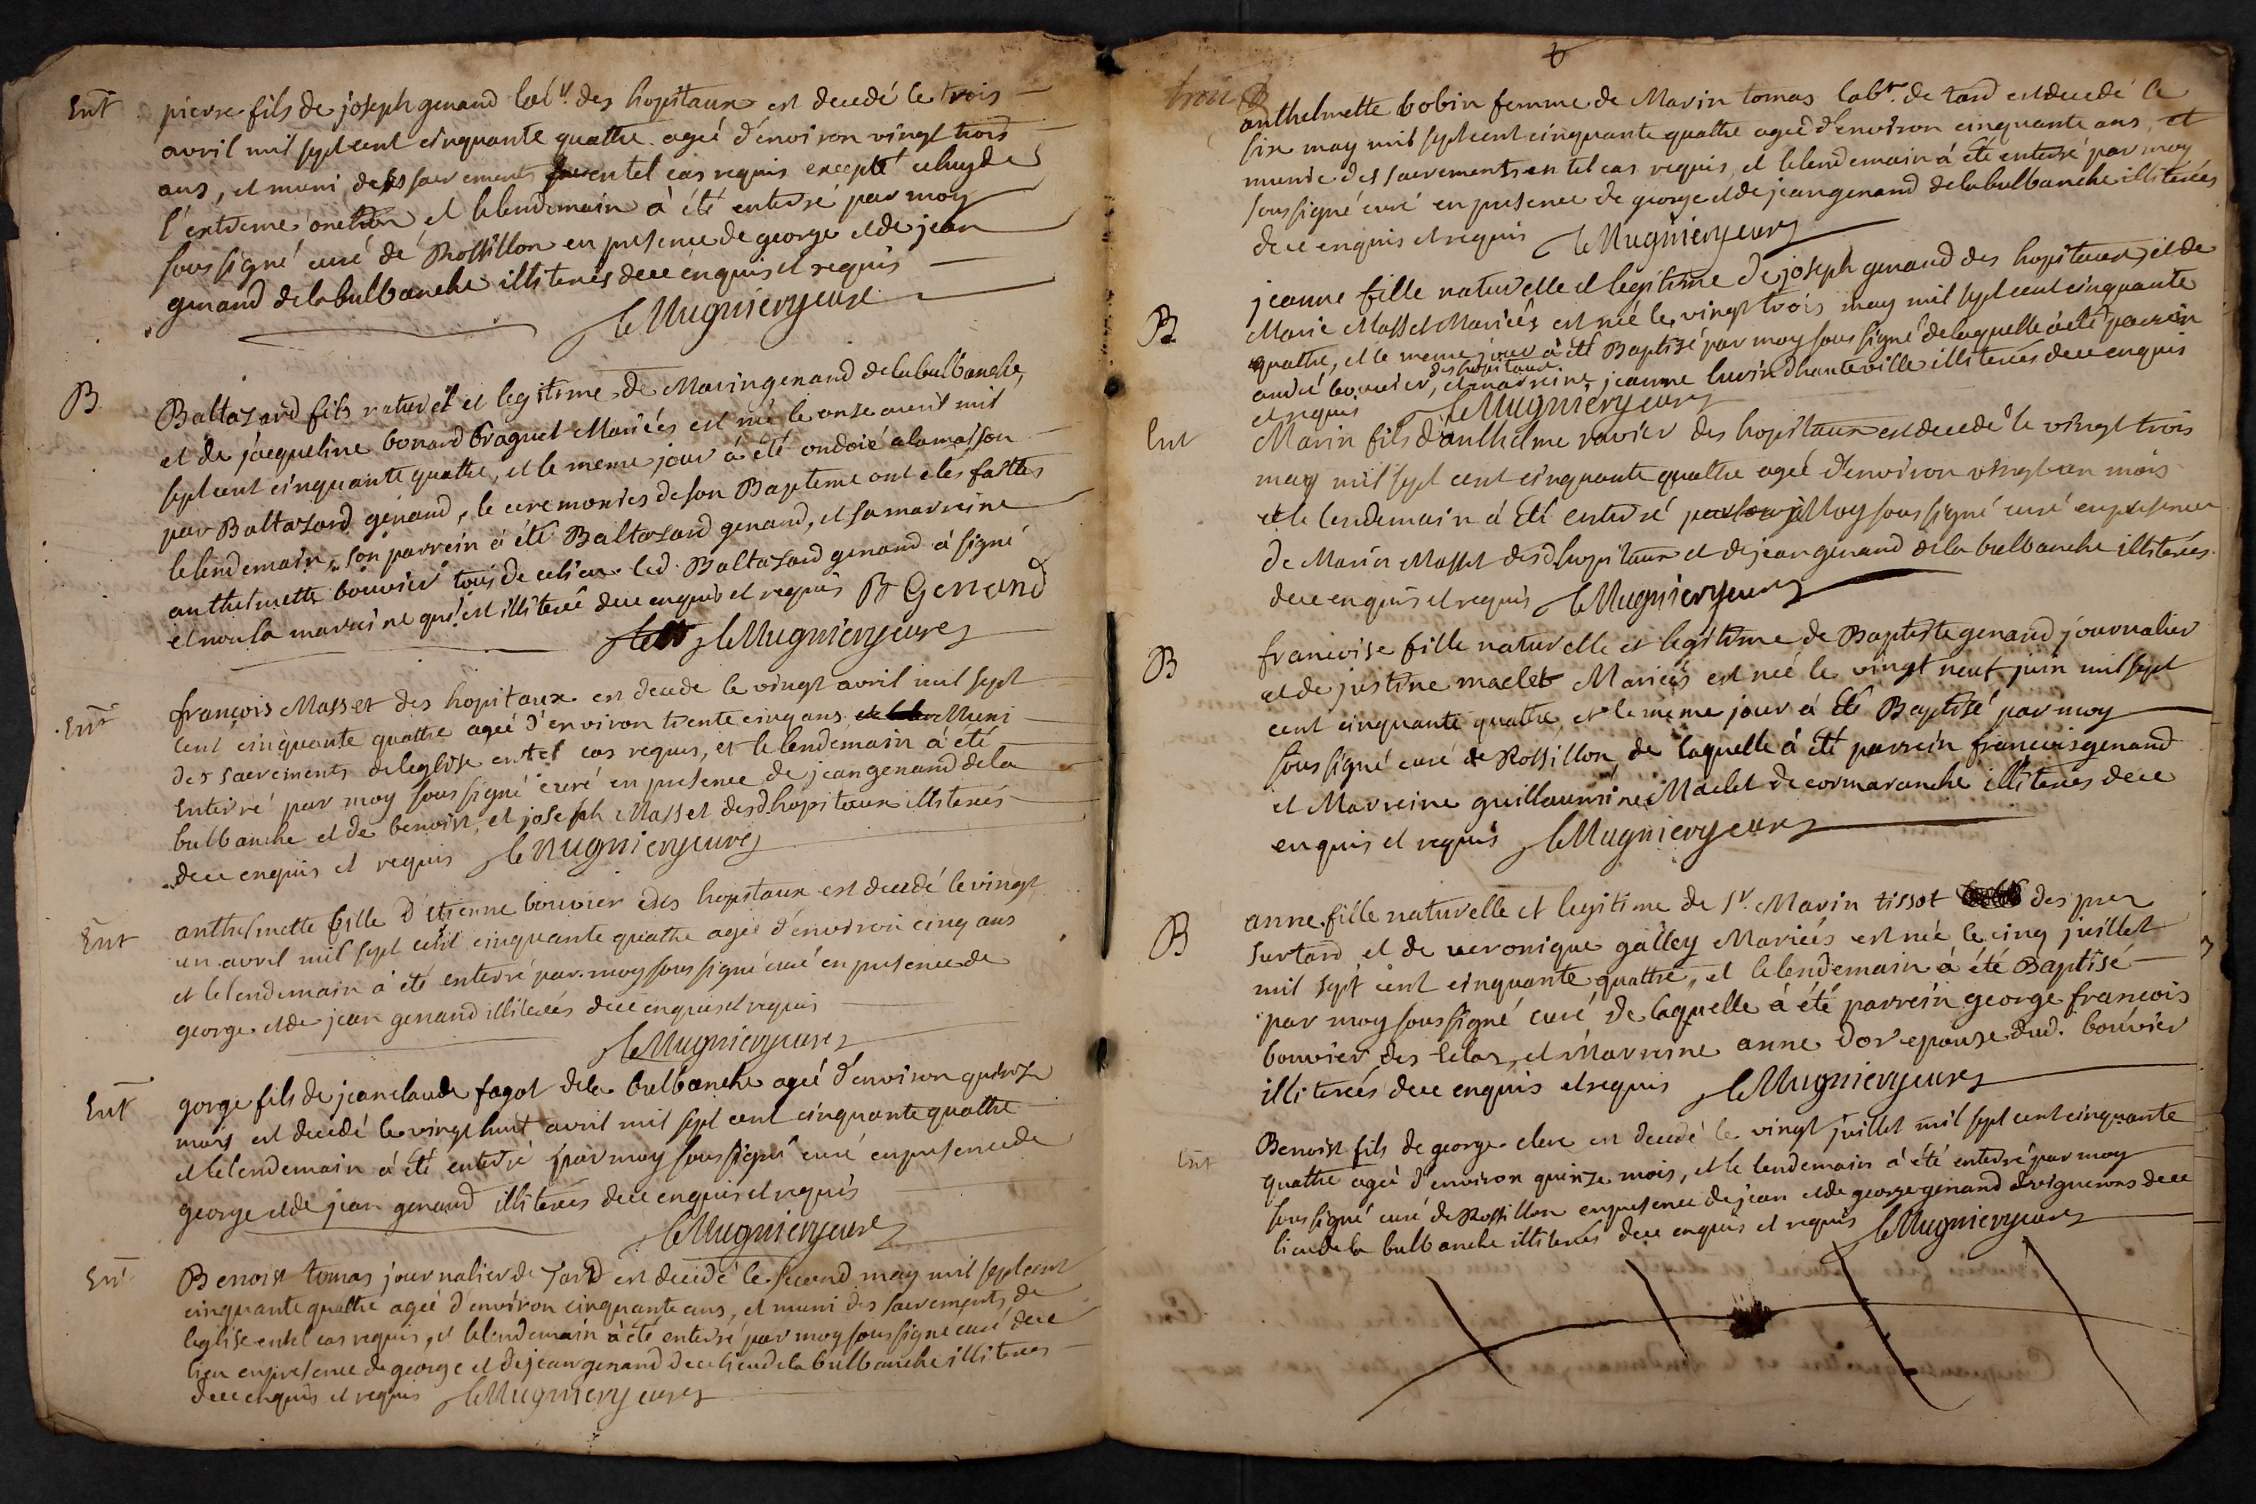 Ent
pierre fils de joseph genand lab.r des hopitaux est decedé le trois
avril mil sept cent cinquante quatre agéé d'environ vingt trois
ans, et muni des sacrements en tel cas requis excepté celuy de
l'extreme onction et le lendemain à été enterré par moy
sous signé curé de Rossillon en presence de george et de jean
genand de la bulbanche illiterés de ce enquis et requis
le Mugnier curé
B
Baltazard fils naturel et legitime de Marin genand de la bulbanche,
et de jacqueline bonard braguet Mariéés est née le onze avril mil
sept cent cinquante quatre, et le meme jour à été ondoié a la maison
par Baltazard genand, le ceremonies de son Bapteme ont etés faittes
le lendemain, son parrein à été Baltazard genand, et sa marreine
anthelmette bouvier tous de ce lieu led. Baltazard genand à signé
et non la marreine qui est illiteréé de ce enquis et requis B Genand
le Mugnier curé
Ent
françois Masset des hopitaux est decede le vingt avril mil sept
cent cinquante quatre agéé d'environ trente cinq ans Muni
des sacrements de leglise en tel cas requis, et le lendemain à été
Enterré par moy sous signé curé en presence de jean genand de la
bulbanche et de benoist, et joseph Masset desd. hopitaux illiterés
de ce enquis et requis le Mugnier curé
Ent
anthelmette fille d'etienne bouvier des hopitaux est decedé le vingt
un avril mil sept cent cinquante quatre agée d'environ cinq ans
et le lendemain à été enterré par moy sous signé curé en presence de
george et de jean genand illiterés de ce enquis et requis
le Mugnier curé
Ent
gorge fils de jean claude fagot de la bulbanche agéé d'environ quinze
mois est decedé le vingt huit avril mil sept cent cinquante quatre
et le lendemain à été enterré par moy sous signé curé en presence de
george et de jean genand illiterés de ce enquis et requis
le Mugnier curé
Ent
Benoist tomas journalier de Tard est decedé le second may mil sept cent
cinquante quatre agéé d'environ cinquante ans, et muni des sacrements de
leglise en tel cas requis, et le lendemain à été enterré par moy sous signé curé de ce
lieu en presence de george et de jean genand de ce lieu de la bulbanche illiterés
de ce enquis et requis le Mugnier curé
trois
anthelmette bobin femme de Marin tomas lab.r de tard est decedé le
six may mil sept cent cinquante quatre agéé d'environ cinquante ans, et
munie des sacrements en tel cas requis, et le lendemain à été enterré par moy
sous signé curé en presence de george et de jean genand de la bulbanche illiterés
de ce enquis et requis le Mugnier curé
B
jeanne fille naturelle et legitime de joseph genand des hopitaux, et de
Marie Masset Mariéés est néé le vingt trois may mil sept cent cinquante
quatre, et le meme jour à été Baptisé par moy sous signé de laquelle à été parrein
andré bouvier, des hopitaux et marreine jeanne luvin d'hauteville illiterés de ce enquis
et requis le Mugnier curé
Ent
Marin fils d'anthelme ravier des hopitaux est decedé le vingt trois
may mil sept cent cinquante quatre agéé d'environ vingt un mois
et le lendemain à été enterré Moy sous signé curé en presence
de Marin Masset desd. hopitaux et de jean genand de la bulbanche illiterés
de ce enquis et requis le Mugnier curé
B
francoise fille naturelle et legitime de Baptiste genand journalier
et de justine maclet Mariéés est néé le vingt neuf juin mil sept
cent cinquante quatre, et le meme jour à été Baptisé par moy
sous signé curé de Rossillon, de laquelle à été parrein francois genand
et Marreine guillaumine Maclet de cormaranche illiterés de ce
enquis et requis le Mugnier curé
B
anne fille naturelle et legitime de S.r Marin tissot des prez
sur tard, et de veronique galley Mariéés est née le cinq juillet
mil sept cent cinquante quatre, et le lendemain à été Baptisé
par moy sous signé curé de laquelle à été parrein george francois
bouvier des lelas, et Marreine anne dor epouse dud. bouvier
illiterés de ce enquis et requis le Mugnier curé
Ent
Benoist fils de george clerc est decedé le vingt juillet mil sept cent cinquante
quatre agéé d'environ quinze mois, et le lendemain à été enterré par moy
sous signé curé de Rossillon en presence de jean et de george genand vignerons de ce
lieu de la bulbanche illiterés de ce enquis et requis le Mugnier curé